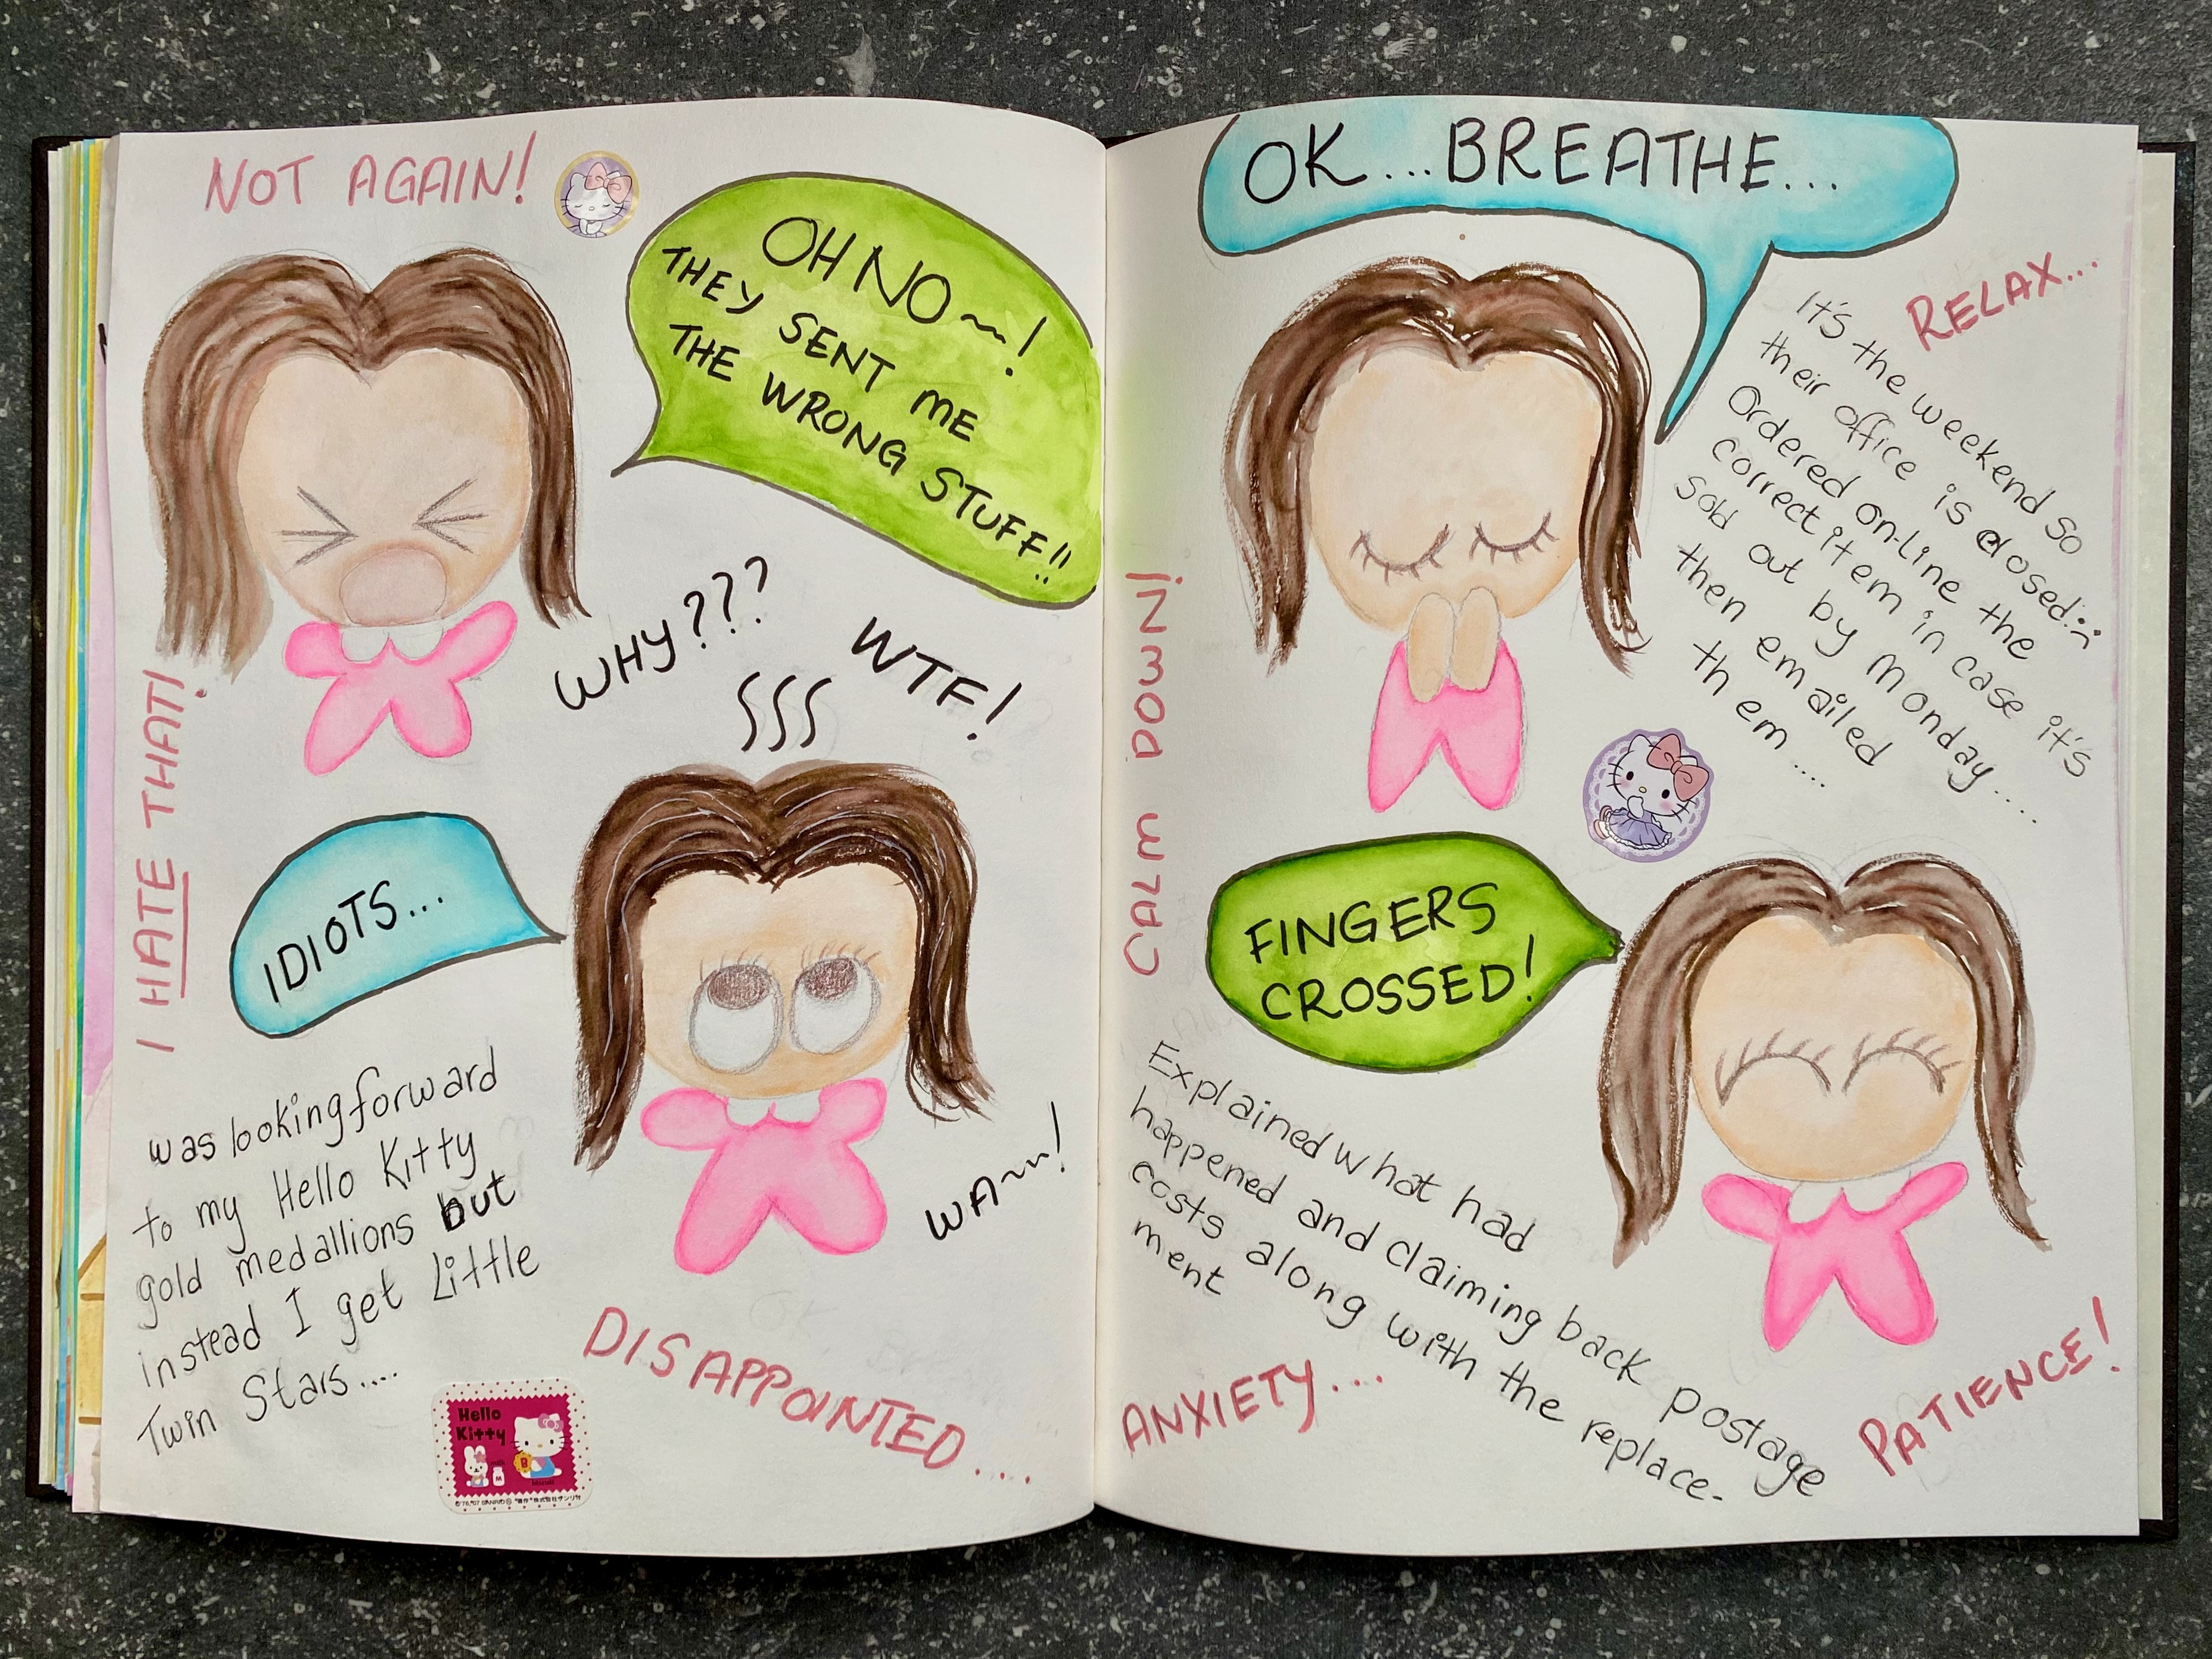 NOT AGAIN!
OH NO~!
THEY SENT ME
THE WRONG STUFF!!
WHY???
WTF!
I HATE THAT!
IDIOTS...
was looking forward
to my Hello Kitty
gold medallions but
instead I get Little
Twin Stars....
WA~~!
DISAPPOINTED....
Hello
Kitty
OK...BREATHE...
RELAX...
It's the weekend so
their office is closed :(
Ordered on-line the
correct item in case it's
sold out by Monday....
then emailed
them....
CALM DOWN!
FINGERS
CROSSED!
Explained what had
happened and claiming back postage
costs along with the replace-
ment
ANXIETY...
PATIENCE!